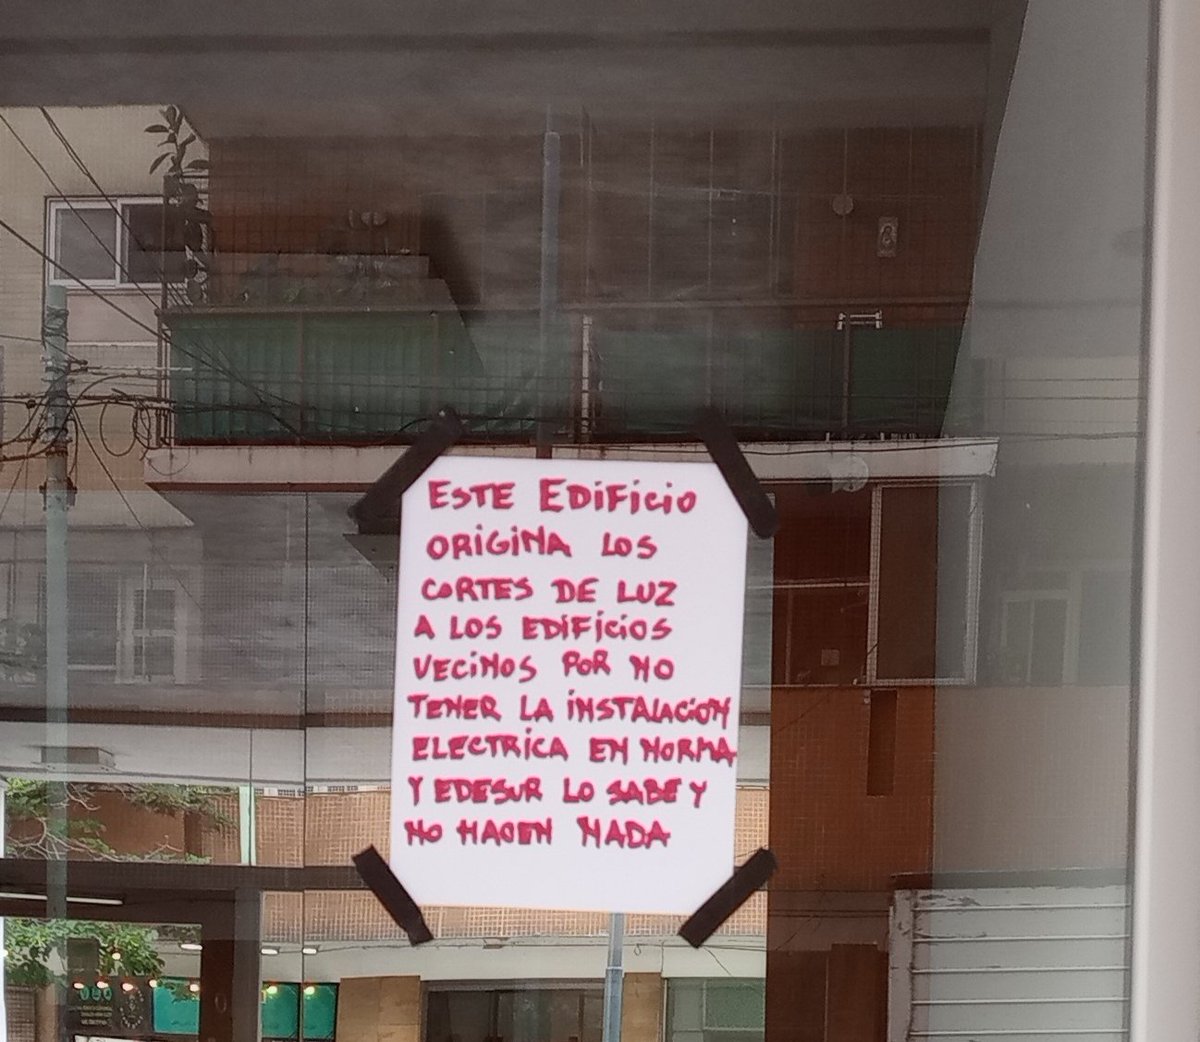 ESTE EDIFICIO
ORIGINA LOS
CORTES DE LUZ
A LOS EDIFICIOS
VECINOS POR NO
TENER LA INSTALACION
ELECTRICA EN NORMA
Y EDESUR LO SABE Y
NO HACEN NADA